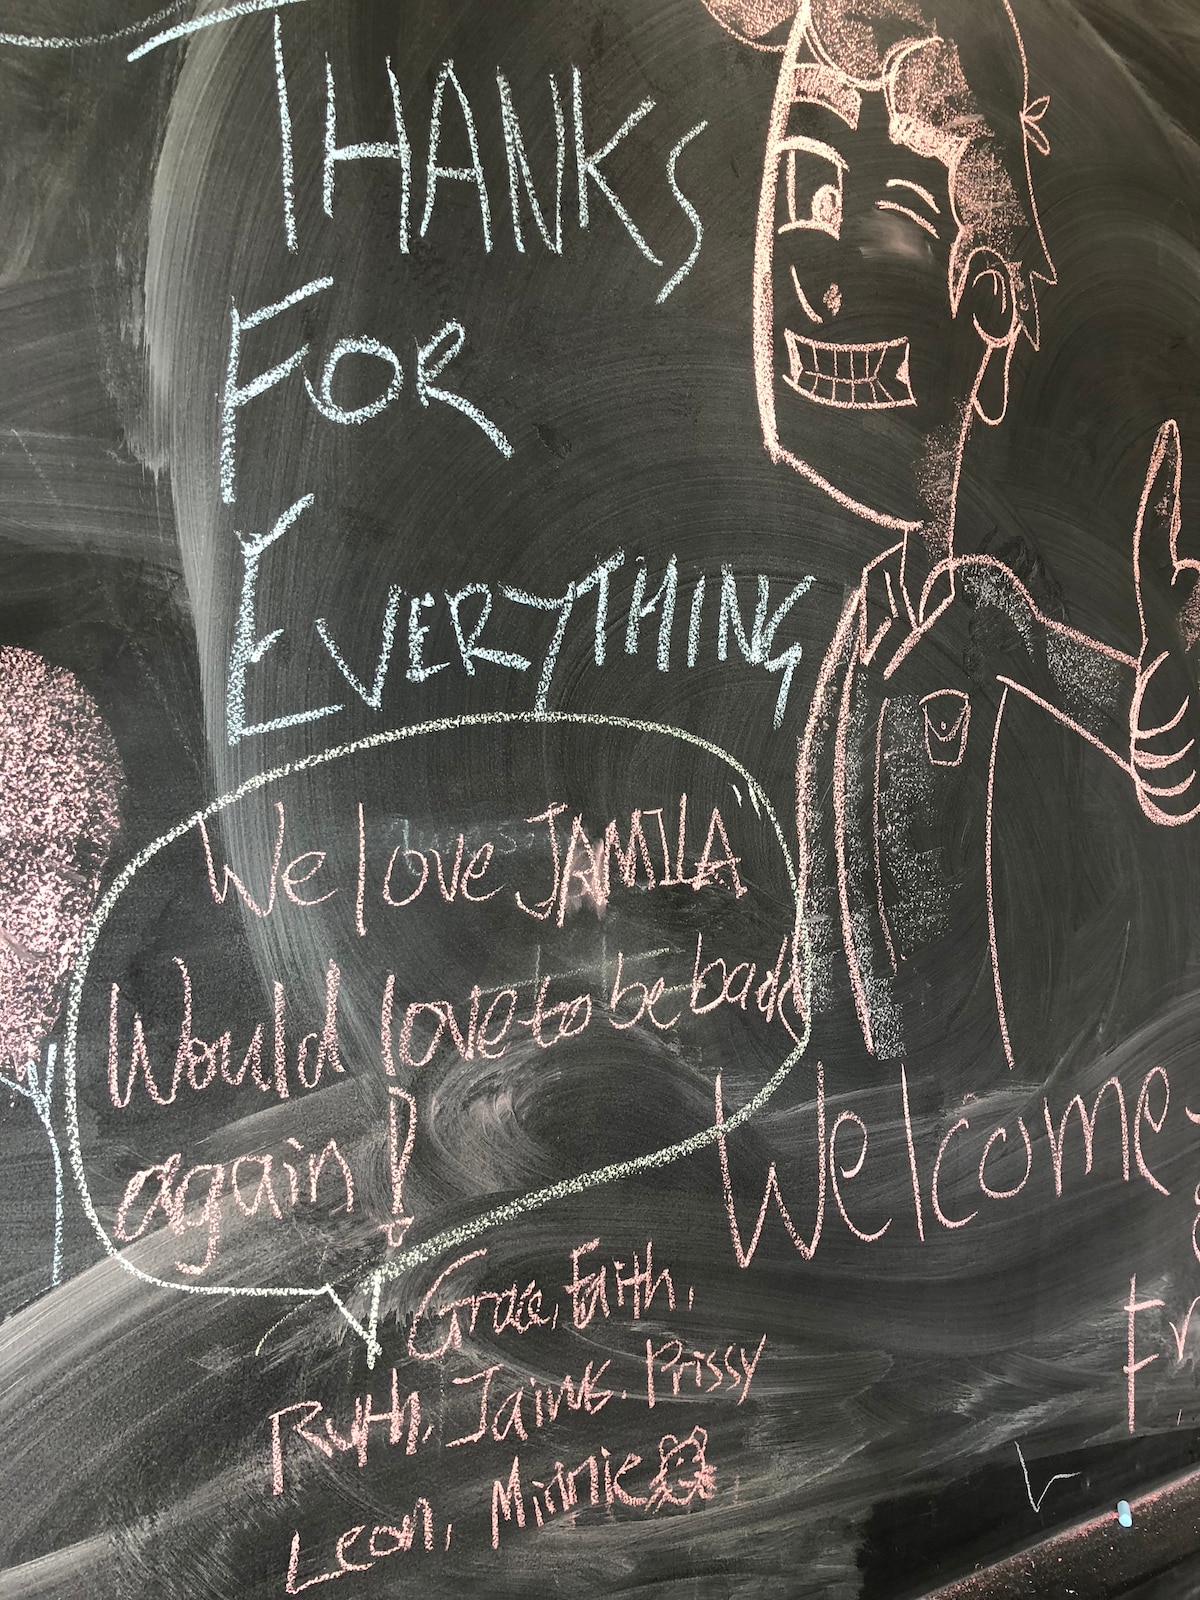 THANKS
FOR
EVERYTHING
We love JAMILA
Would love to be back
again!
Welcome
Grace, Faith,
Ruth, Prissy
Leon, Minnie